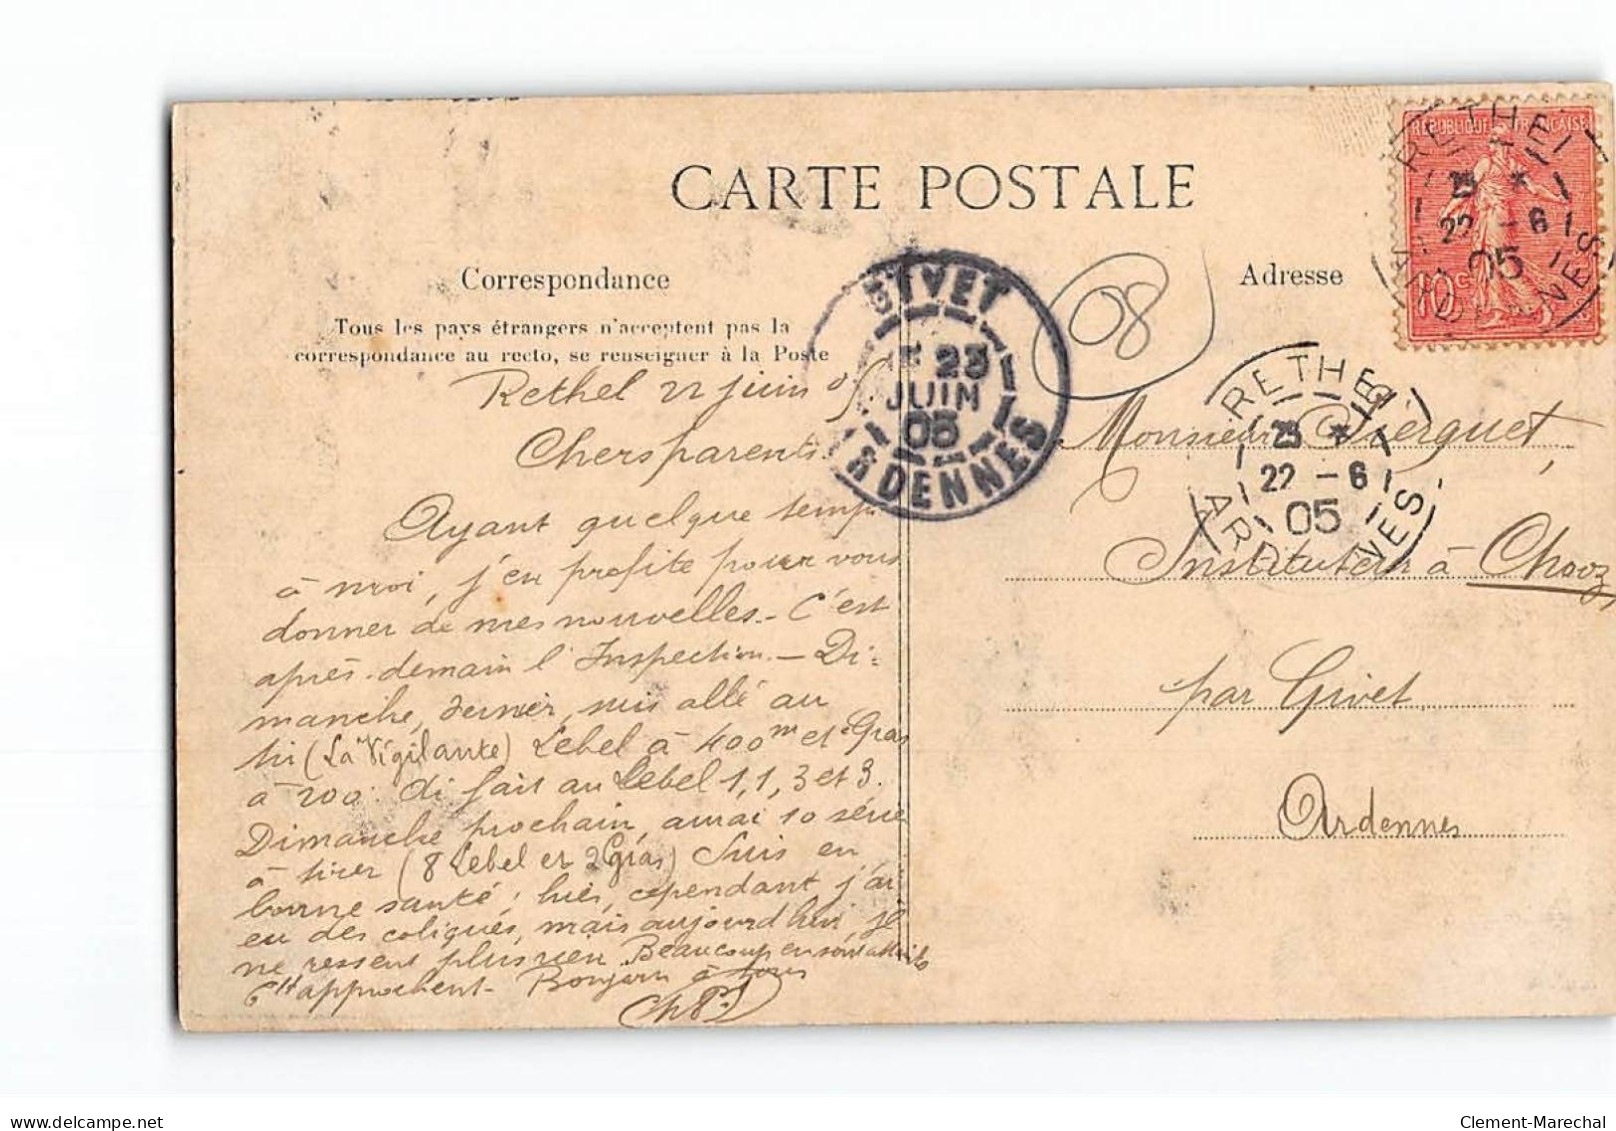 CARTE POSTALE
Correspondance
Tous les pays étrangers n'acceptent pas la
correspondance au recto, se renseigner à la Poste
Rethel 22 juin 05
Chers parents
Ayant quelque temps
à moi, j'en profite pour vous
donner de mes nouvelles. - C'est
après-demain l'Inspection. - Di-
manche, dernier, suis allé au
tir (La Vigilante) Lebel à 400m et Gras
à 200. Ai fait au Lebel 1, 1, 3 et 3.
Dimanche prochain, aurai 10 série
à tirer (8 Lebel et 2 Gras) Suis en
bonne santé ; hier, cependant, j'ai
eu des coliques, mais aujourd'hui, je
ne ressens plus rien. Beaucoup en sont atteints
approchent - Bonjour à tous
GIVET
23
JUIN
05
ARDENNES
08
Adresse
REPUBLIQUE FRANÇAISE
10c
RETHEL
22 - 6
05
ARDENNES
RETHEL
22 - 6
05
ARDENNES
Monsieur
Instituteur à Chooz
par Givet
Ardennes
www.delcampe.net
Clement-Marechal